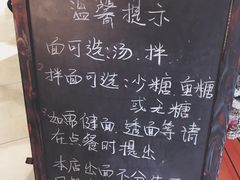 温馨提示
面可选:汤、拌
拌面可选:少糖 重糖
或无糖
*如需硬面、透面等 请
在点餐时提出
本店出面不分先